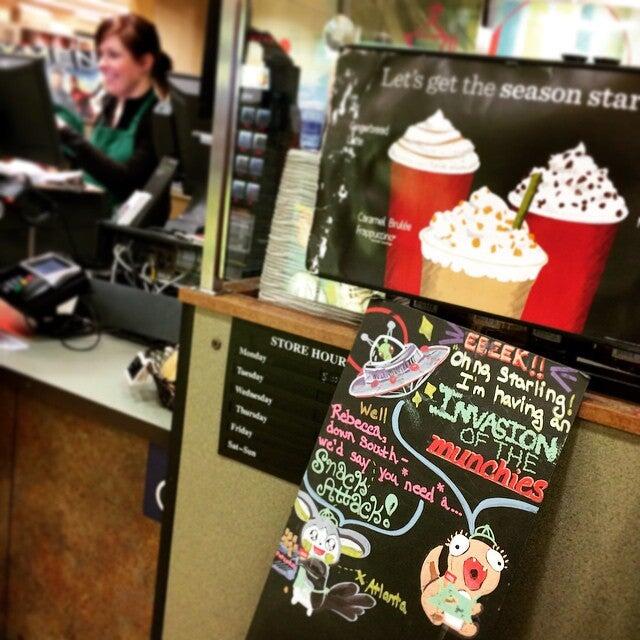 Let's get the season star
Caramel Brulée
Frappuccino
STORE HOUR
Monday
Tuesday
Wednesday
Thursday
Friday
Sat-Sun
EEEEK!!
"Oh no, starling!
I'm having an
INVASION
OF THE
munchies
Well
Rebecca,
down South-
we'd say you need a...
Snack
Attack!
x Atlanta